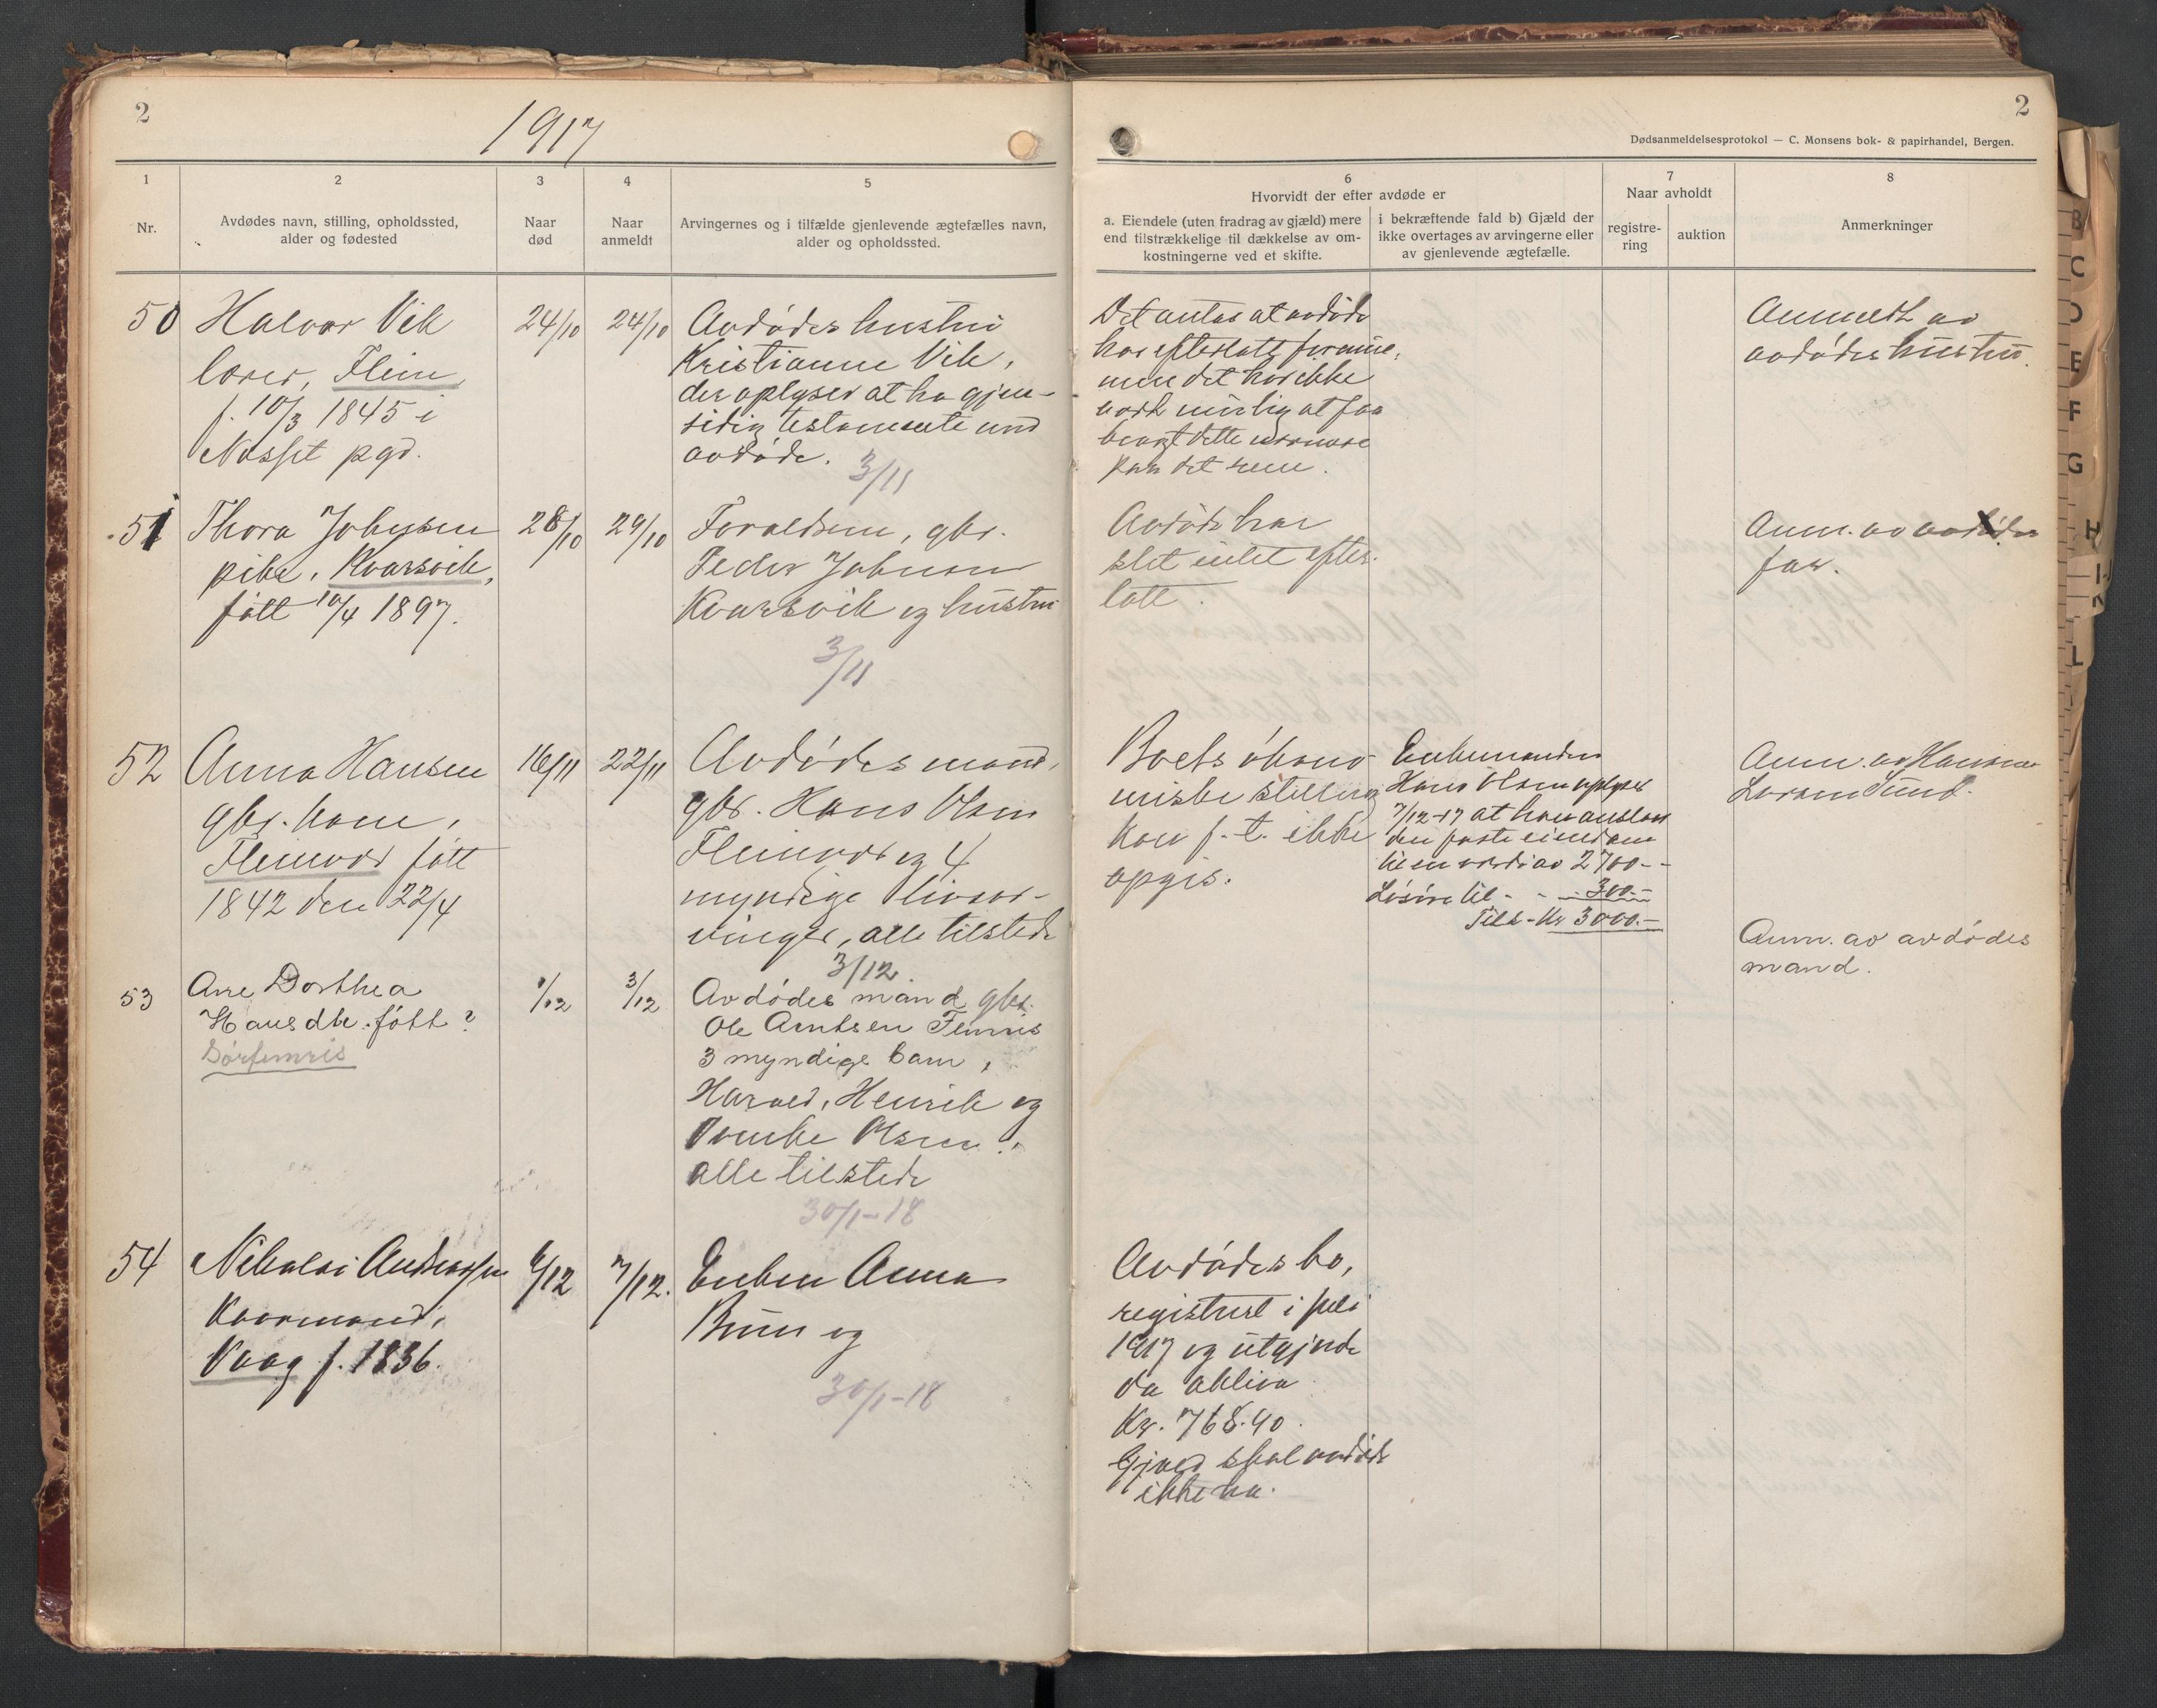 2
1917
1
2
3
4
5
Nr.
Avdødes navn, stilling, opholdssted,
alder og fødested
Naar
død
Naar
anmeldt
Arvingernes og i tilfælde gjenlevende ægtefælles navn,
alder og opholdssted.
50
Halvor Vik
lærer, Flein,
f. 10/3 1845 i
Nesset pgd.
24/10
24/10
Avdødes hustru
Kristianne Vik,
der oplyser at ha gjen-
sidig testamente med
avdøde.
3/11
51
Thora Johnsen
pike, Kvarsvik,
født 10/4 1897.
28/10
29/10
Forældrene, gbr.
Peder Johnsen
Kvarsvik og hustru
3/11
52
Anna Hansen
gbr. kone,
Fleinvær født
1842 den 22/4
16/11
22/11
Avdødes mand,
gbr. Hans Olsen
Fleinvær og 4
myndige livsar-
vinger, alle tilstede
3/12
53
Ane Dorthea
Hansdtr. født?
Sørfemris
1/12
3/12
Avdødes mand gbr.
Ole Arntsen Femris
3 myndige barn,
Harald, Henrik og
Olsen.
alle tilstede
30/1-18
54
Nikolai Andreassen
Kaarmand,
Vaag f. 1836.
6/12
7/12.
Enken Anna
Bruun og
30/1-18
2
Dødsanmeldelsesprotokol — C. Monsens bok- & papirhandel, Bergen.
6
Hvorvidt der efter avdøde er
a. Eiendele (uten fradrag av gjæld) mere
end tilstrækkelige til dækkelse av om-
kostningerne ved et skifte.
i bekræftende fald b) Gjæld der
ikke overtages av arvingerne eller
av gjenlevende ægtefælle.
7
Naar avholdt
registre-
ring
auktion
8
Anmerkninger
Det antas at avdøde
har efterlatt formue,
men det har ikke
vært mulig at faa
bragt dette nærmere
paa det rene.
Anmeldt av
avdødes hustru.
Avdøde har
slet intet efter-
latt.
Anm. av avdødes
far.
Boets økono-
miske stilling
kan f. t. ikke
opgis.
Enkemanden
Hans Olsen oplyser
7/12-17 at han anslaar
den faste eiendom
til en værdi av 2700.-
Løsøre til - - 300.-
Tils - Kr 3000.-
Anm. av Hansen
Lorensund.
Anm. av avdødes
mand.
Avdødes bo,
registrert i juli
1917 og utgjorde
da aktiva
Kr. 768.40.
Gjæld skal avdøde
ikke ha.
B
C
D
E
F
G
H
L